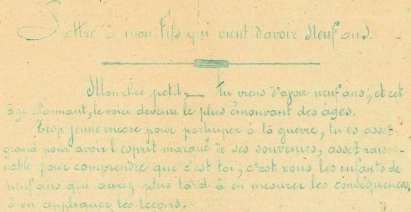 Lettre à mon Fils qui vient d'avoir Neuf ans.
Mon cher petit, Tu viens d'avoir neuf ans, et cet
âge charmant, le voici devenu le plus émouvant des âges.
Trop jeune encore pour participer à la guerre, tu es assez
grand pour avoir l'esprit marqué de ses souvenirs, assez raison-
nable pour comprendre que c'est toi, c'est vous les enfants de
neuf ans qui aurez plus tard à en mesurer les conséquences,
à en appliquer les leçons.